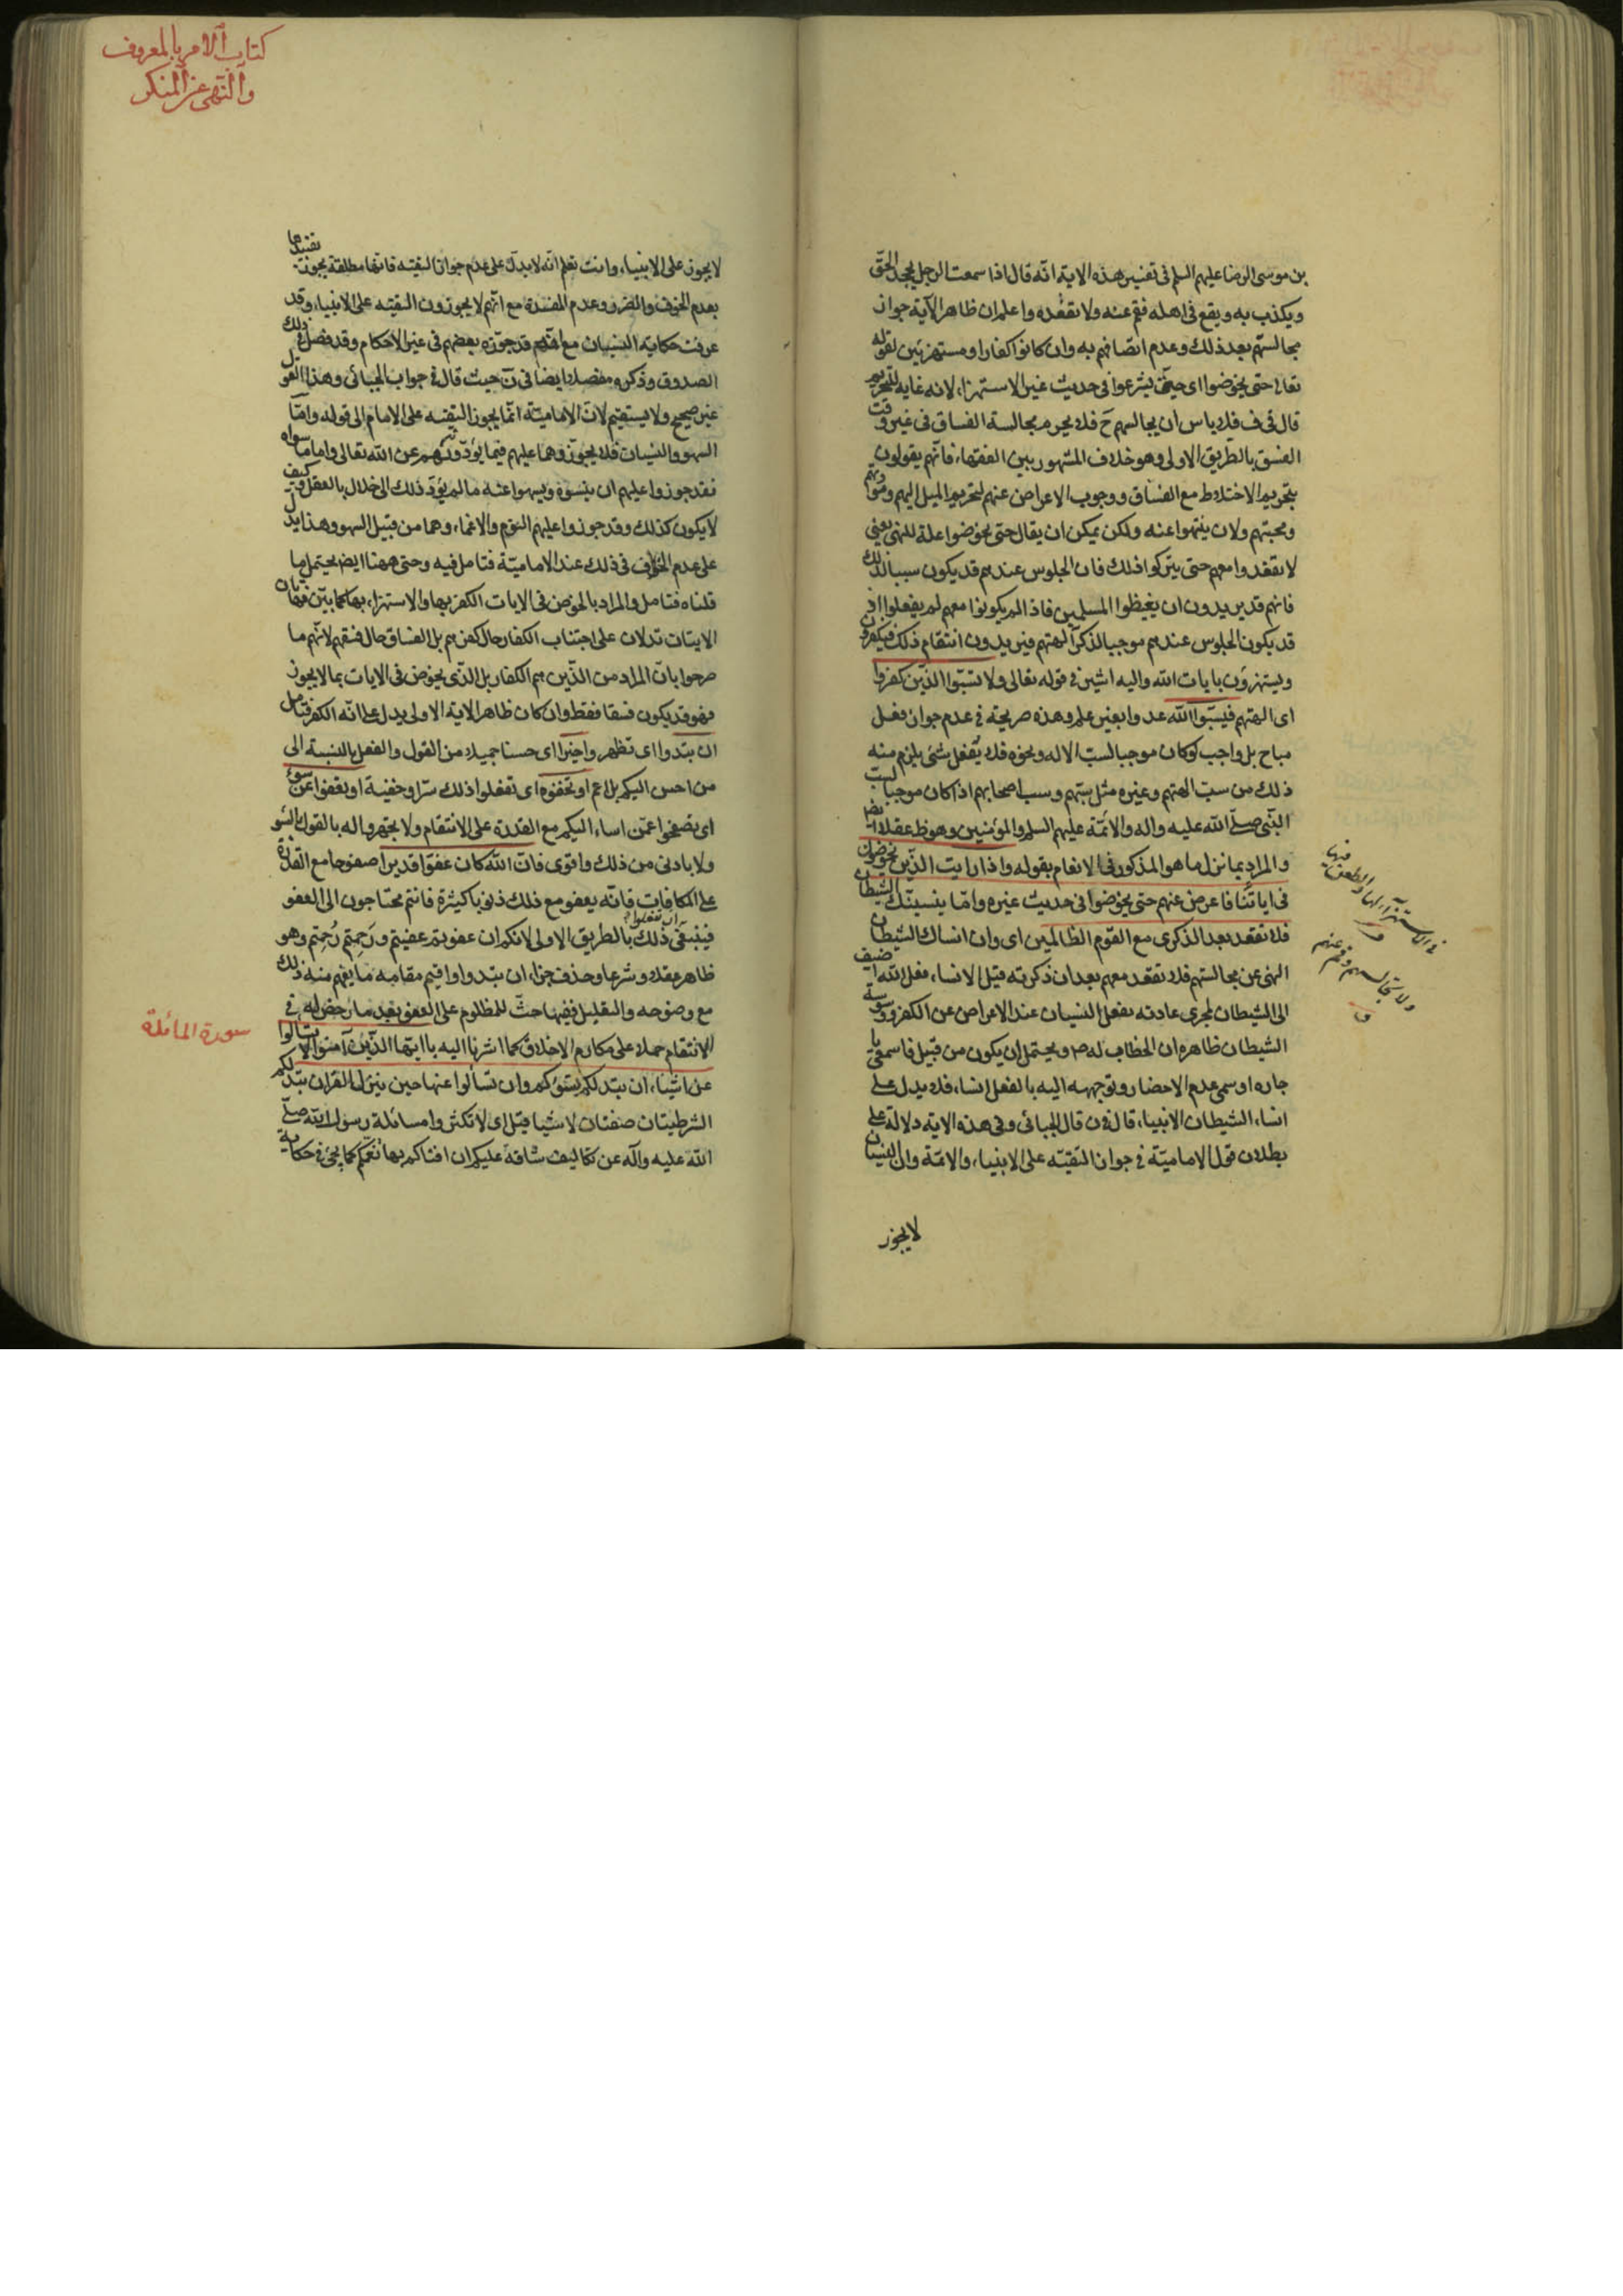 بن موسى الرضا عليهم السلم فى تفسير هذه الاية انه قال اذا سمعت الرجل يجحد الحق
ويكذب به ويقع فى اهله فقم عنه ولا تقعده واعلم ان ظاهر الآية جواز
مجالستهم بعد ذلك وعدم اتصافهم به وان كانوا كفارا ومستهزئين لقوله
تعالى حتى يخوضوا اى حتى يشرعوا فى حديث غير الاستهزاء لانه غاية للتحريم
قال فى ف فلا باس ان يجالسهم ح فلا يحرم مجالسة الفساق فى غير وقت
الفسق بالطريق الاولى وهو خلاف المشهور بين الفقهاء فانهم يقولون
بتحريم الاختلاط مع الفساق ووجوب الاعراض عنهم لتحريم الميل اليهم وموادتهم
ومحبتهم ولان ينتهوا عنه ولكن يمكن ان يقال حتى يخوضوا علة للنهى يعنى
لا تقعدوا معهم حتى يتركوا ذلك فان الجلوس عندهم قد يكون سببا لذلك
فانهم قد يريدون ان يغيظوا المسلمين فاذا لم يكونوا معهم لم يفعلوا اذ
قد يكون الجلوس عندهم موجبا لذكر آلهتهم فيريدون انتقام ذلك فيكفرون
ويستهزؤن بايات الله واليه اشير فى قوله تعالى ولا تسبوا الذين كفروا
اى الهتهم فيسبوا الله عدوا بغير علم وهذه صريحة فى عدم جواز فعل
مباح بل واجب لو كان موجبا لسب الاله ونحوه فلا يفعل شئ يلزم منه
ذلك من سب الهتهم وغيره مثل سبهم وسب اصحابهم اذا كان موجبا لسب
النبى صلى الله عليه واله والائمة عليهم السلم والمؤمنين وهو ظ عقلا ايضا
والمراد بما نزل ما هو المذكور فى الانعام بقوله واذا رايت الذين يخوضون
فى اياتنا فاعرض عنهم حتى يخوضوا فى حديث غيره واما ينسينك الشيطان
فلا تقعد بعد الذكرى مع القوم الظالمين اى وان انساك الشيطان
النهى عن مجالستهم فلا تقعد معهم بعد ان ذكرته قيل الانساء فعل الله اضيف
الى الشيطان لمجرى عادته بفعل النسيان عند الاعراض عن الكفر ووسوسة
الشيطان ظاهره ان الخطاب له ص ويحتمل ان يكون من قبيل فاسمعى يا
جاره او سمى عدم الاحضار وتوجهه اليه بالفعل انساء فلا يدل على
انساء الشيطان الانبياء قال فى ن قال الجبائى وفى هذه الاية دلالة على
بطلان قول الامامية فى جواز التقية على الانبياء والائمة وان النسيان
لا يجوز
فى الاستهزاء بها والطعن فيها
ولا تجالسهم وقم عنهم
كتاب الامر بالمعروف
والنهى عن المنكر
لا يجوز على الانبياء وانت تعلم انه لا يدل على عدم جواز التقية فانها مطلقة يجوز تقييدها
بعدم الخوف والضرر وعدم المفسدة مع انهم لا يجوزون التقية على الانبياء وقد
عرفت حكاية النسيان مع انه قد جوزه بعضهم فى غير الاحكام وقد فصل ذلك
الصدوق وذكره مفصلا ايضا فى ن حيث قال فى جواب الجبائى وهذا القول
غير صحيح ولا يستقيم لان الامامية انما يجوز التقية على الامام الى قوله واما
السهو والنسيان فلا يجوزوهما عليهم فيما يؤدونه عن الله تعالى واما ما سواه
فقد جوزوا عليهم ان ينسوه ويسهوا عنه ما لم يؤد ذلك الى اخلال بالعقل وكيف
لا يكون كذلك وقد جوزوا عليهم النوم والاغماء وهما من قبيل السهو وهذا يدل
على عدم الخلاف فى ذلك عند الامامية فتامل فيه وحتى ههنا ايض يحتمل ما
قلناه فتامل والمراد بالخوض فى الايات الكفر بها والاستهزاء بها كما بين فهاتان
الايتان تدلان على اجتناب الكفار حال كفرهم بل الفساق حال فسقهم لانهم ما
صرحوا بان المراد من الذين هم الكفار بل الذى يخوض فى الايات بما لا يجوز
فهو قد يكون فسقا فقط وان كان ظاهر الاية الاولى يدل على انه الكفر فتامل
ان تبدوا اى تظهروا خيرا اى حسنا جميلا من القول والفعل بالنسبة الى
من احسن اليكم بل اعم او تخفوه اى تفعلوا ذلك سرا وخفية او تعفوا عن سوء
اى تصفحوا عمن اساء اليكم مع القدرة على الانتقام ولا تجهروا له بالقول السوء
ولا بادنى من ذلك واقوى فان الله كان عفوا قديرا صفوحا مع القدرة
على المكافات فانه يعفو مع ذلك ذنوبا كثيرة فانتم محتاجون الى العفو
فينبغى ذلك ان تفعلوا بالطريق الاولى لانكم ان عفوتم عفيتم ورحمتم رحمتم وهو
ظاهر عقلا وشرعا وحذف جزاء ان تبدوا واقيم مقامه ما يفهم منه ذلك
مع وضوحه والتعليل ففيها حث للمظلوم على العفو بعد ما رخص له فى
الانتقام حملا على مكارم الاخلاق كما اشرنا اليه يا ايها الذين آمنوا لا تسالوا
عن اشياء ان تبد لكم تسؤكم وان تسألوا عنها حين ينزل القران تبد لكم
الشرطيتان صفتان لاشياء قيل اى لا تكثروا مسائلة رسول الله صلى
الله عليه وآله عن تكاليف شاقة عليكم ان افتاكم بها تغمكم كما يجئ فى حكاية
سورة المائدة